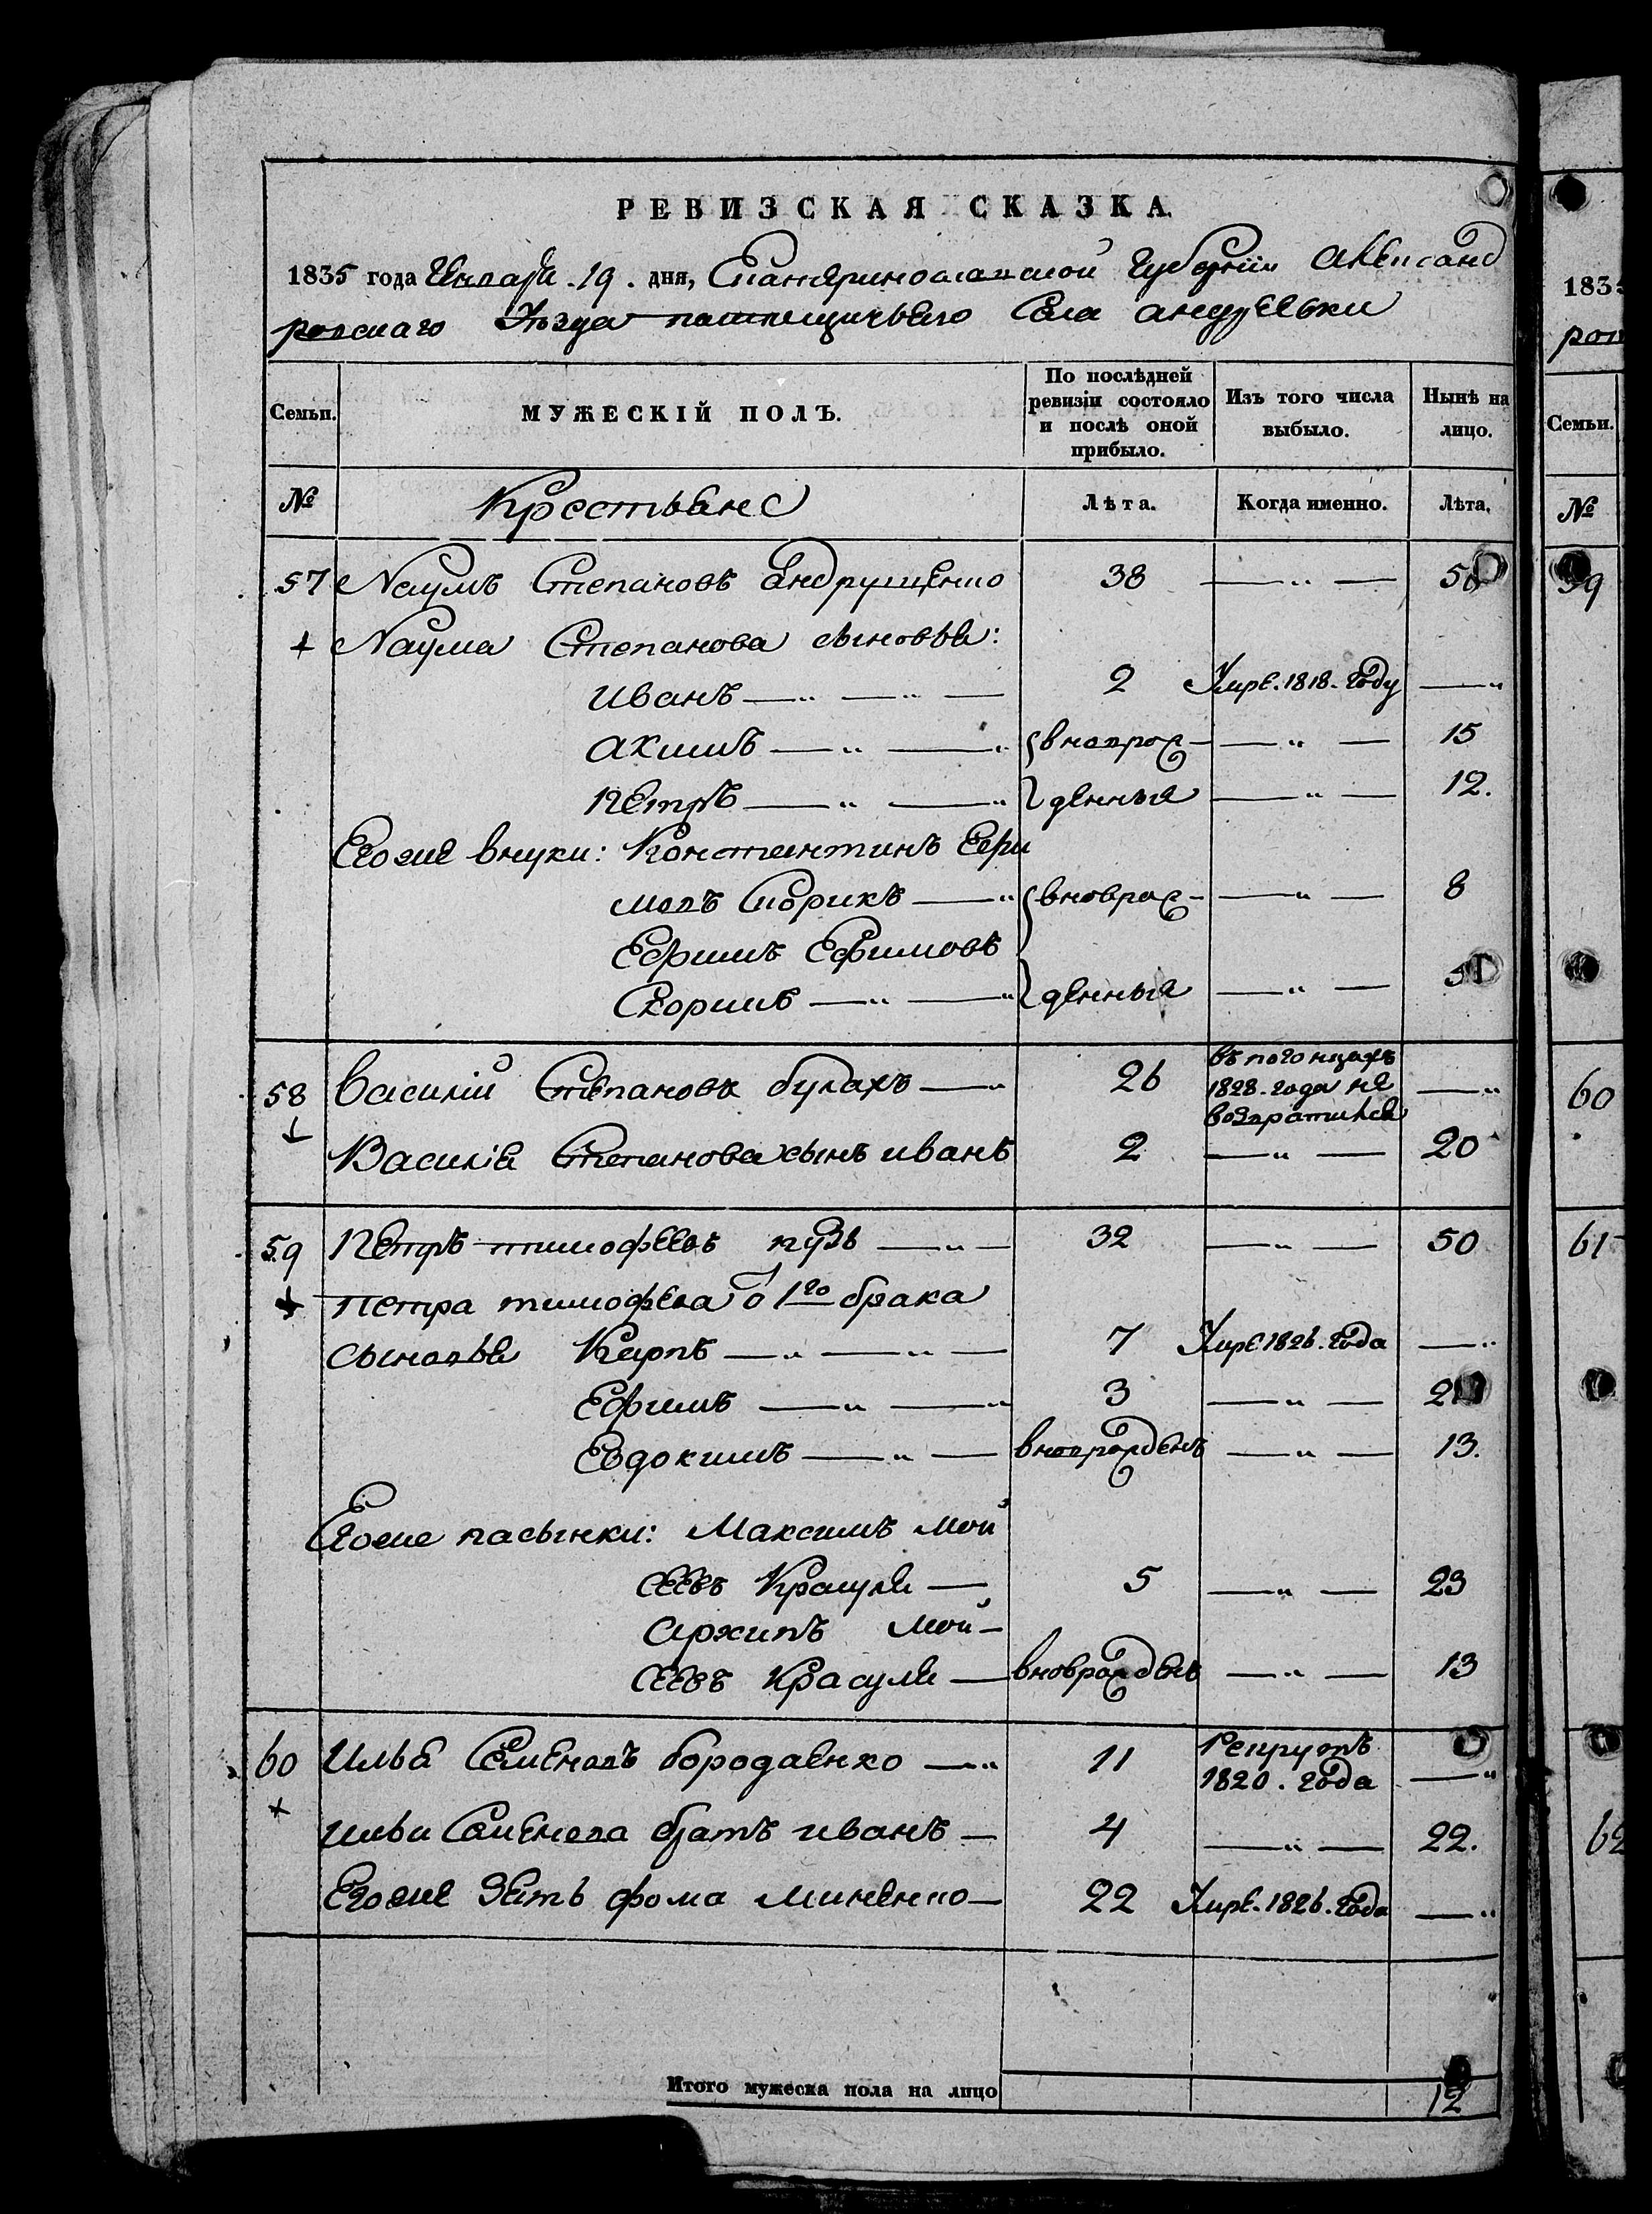 РЕВИЗСКАЯ СКАЗКА.
1835 года Генваря 19. дня, Екатеринославской Губернии Александ
ровскаго Уѣзда помѣщичьяго Села Андреевки
Семьи. МУЖЕСКІЙ ПОЛЪ. По послѣдней ревизіи состояло и послѣ оной прибыло. Изъ того числа выбыло. Нынѣ на лицо.
№ Крестьяне Лѣта. Когда именно. Лѣта.
57 Наумъ Степановъ Андрущенко 38 —„— 56
Наума Степанова сыновья:
Иванъ —„—„— 2 Умре. 1818. Году —„
Акимъ —„—„ вноврож- —„— 15
Петръ —„—„ денныя —„— 12.
Егоже внуки: Константинъ Ефи
мовъ —„ вноврож- —„— 8
Ефимъ Ефимовъ
—„—„ денныя —„—
58 Василій Степановъ булахъ —„ 26 въ погонцахъ 1828. года не возвратился —„
Василія Степанова сынъ иванъ 2 —„— 20
59 Петръ тимофеевъ пузь —„— 32 —„— 50
Петра тимофеева о 1го брака
сыновья Карпъ —„—„— 7 Умре 1826. Года —„
Ефимъ —„—„ 3 —„— 21
Евдокимъ —„— вноврожденъ —„— 13.
Егоже пасынки: Максимъ Мой
сеевъ Красуля — 5 —„— 23
Архипъ Мой-
сеевъ Красуля — вноврожденъ —„— 13
60 Илья Семеновъ бородаенко —„ 11 Рекрутъ 1820. года —„
ильи Семенова братъ иванъ — 4 —„— 22.
Егоже Зять фома Миненко — 22 Умре. 1826. Года —„
Итого мужеска пола на лицо 12
1835
ров
Семьи.
№
59
60
61
62